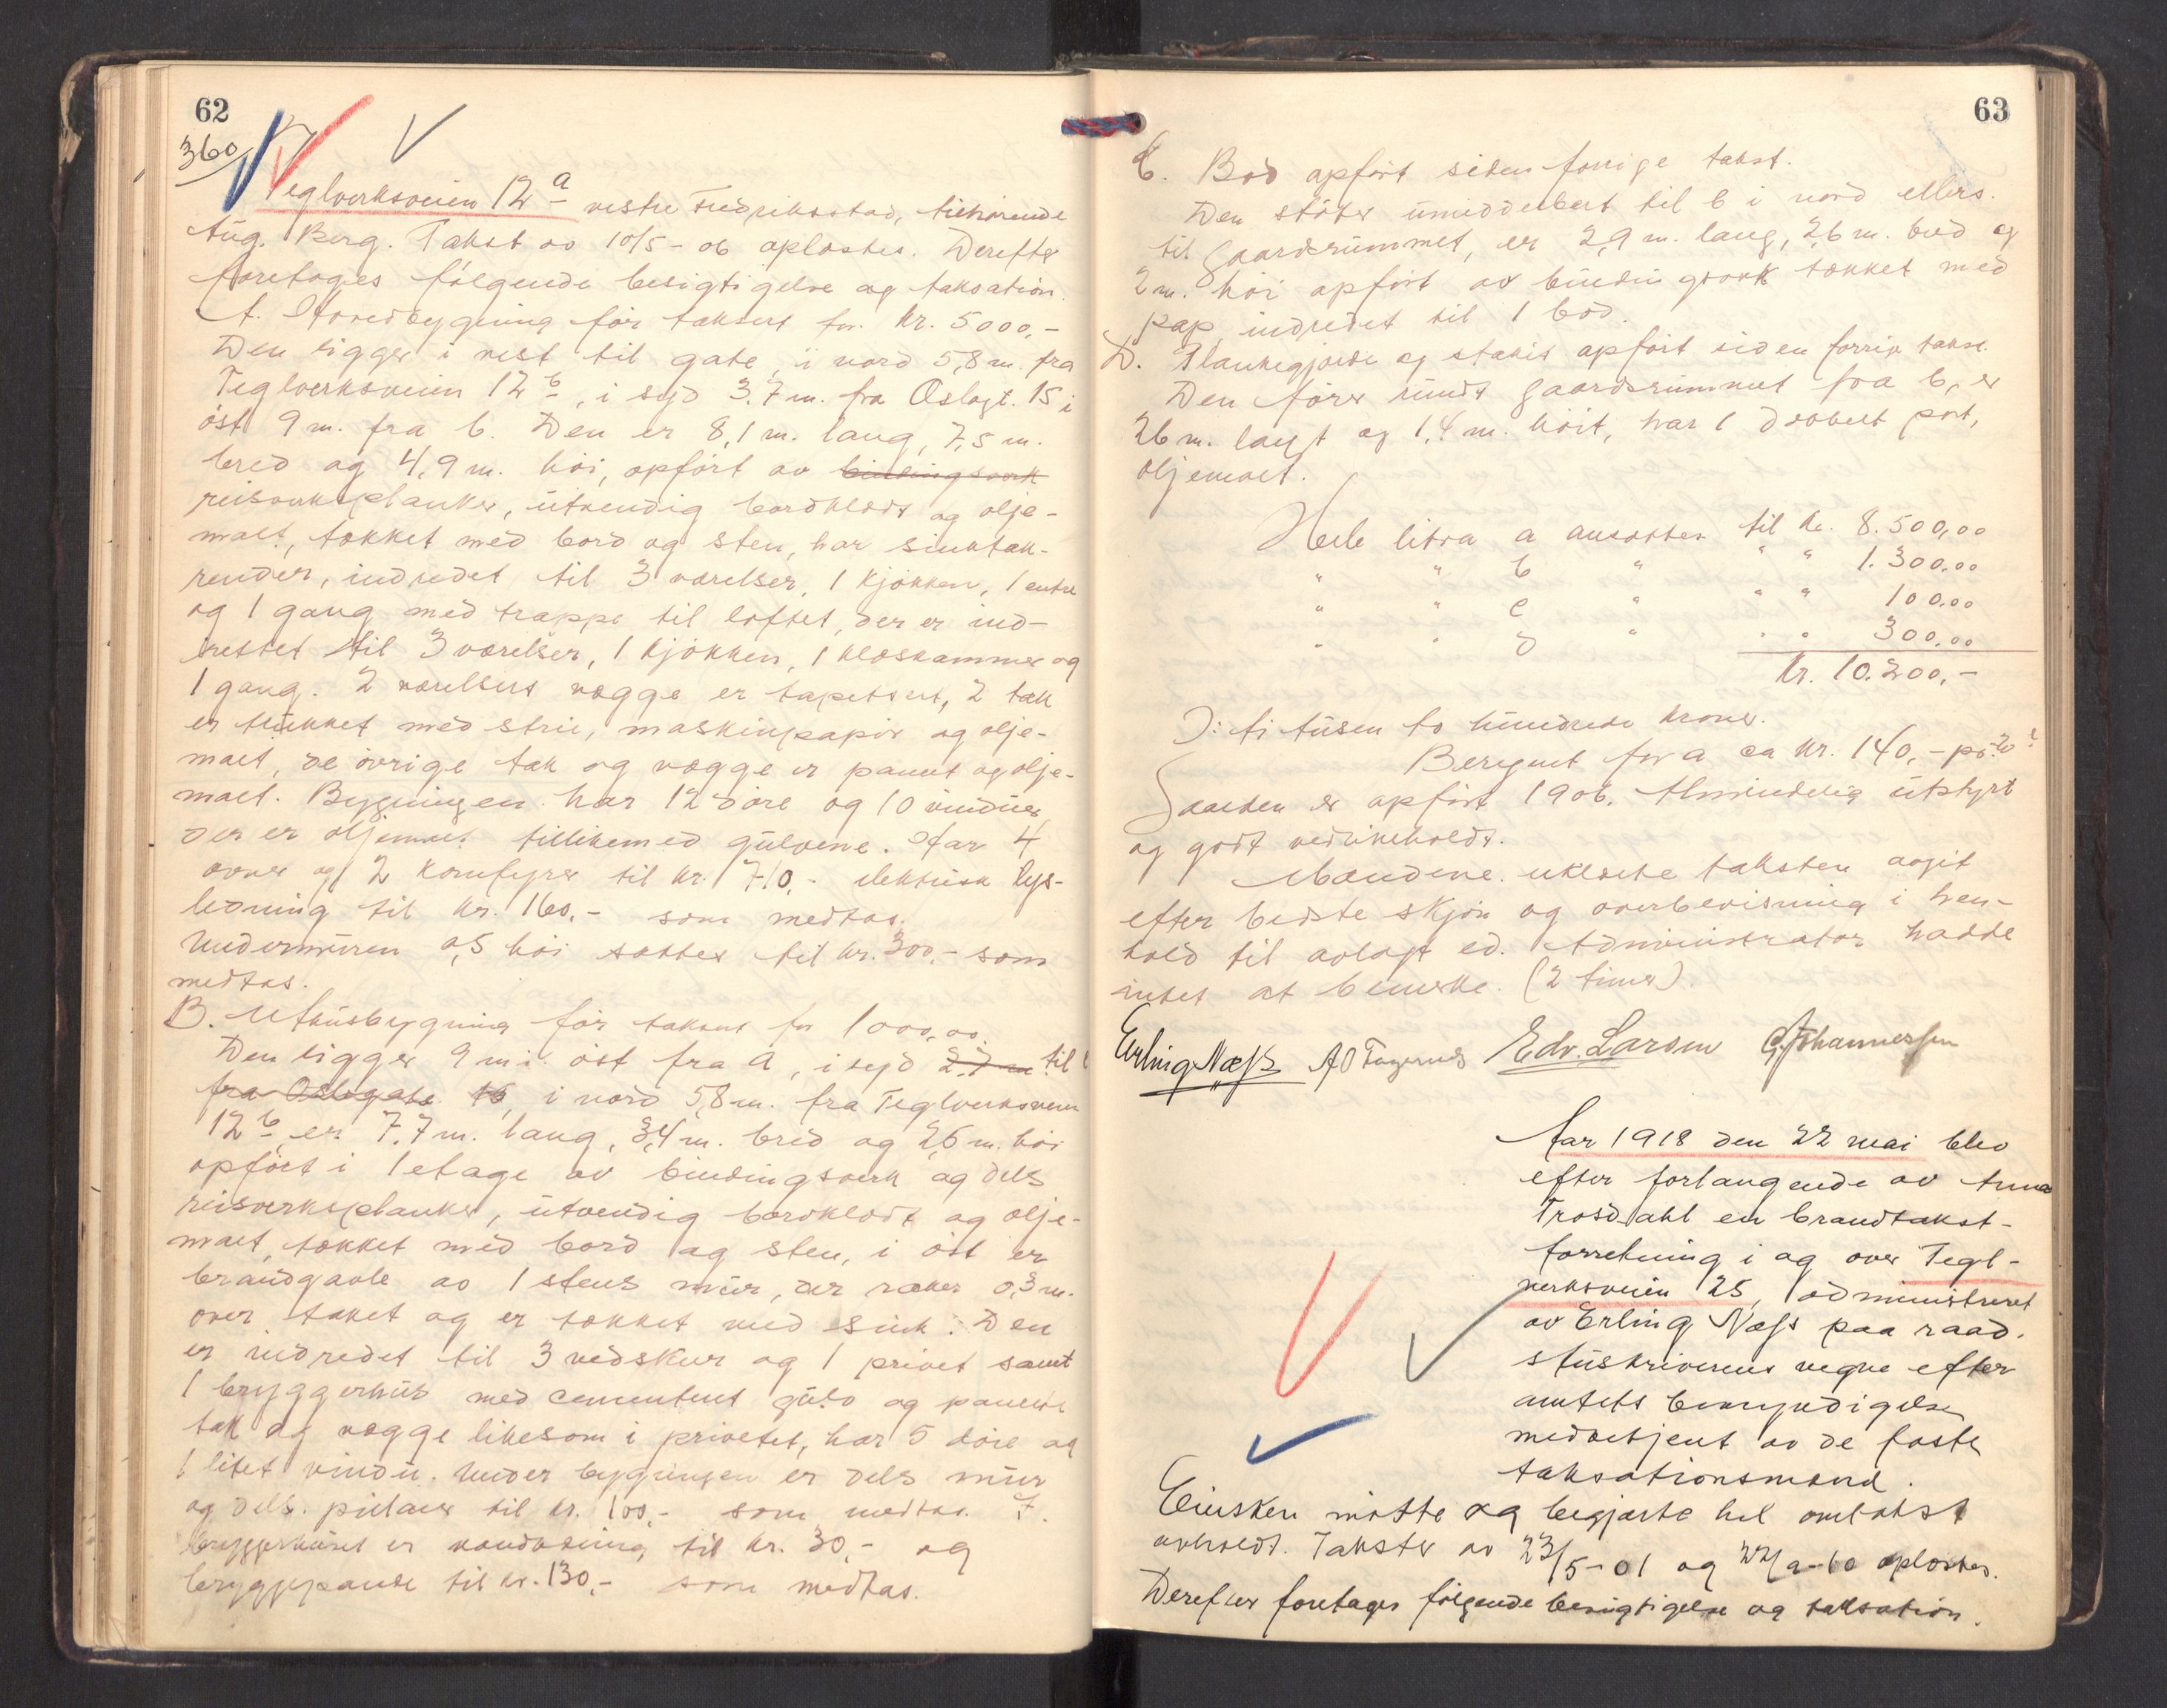 62
360
Teglverksveien 12a vestre Fredriksstad, tilhørende
Aug. Berg. Takst av 10/5-06 oplæstes. Derefter
foretages følgende besigtigelse og taksation.
A. Hovedbygning før taksert for kr. 5000,-
Den ligger i vest til gate, i nord 5,8 m. fra
Teglverksveien 12b, i syd 3,7 m. fra Oslogt. 15 i
øst 9 m. fra b. Den er 8,1 m. lang, 7,5 m.
bred og 4,9 m. høi, opført av bindingsverk
reisverksplanker, utvendig bordklædt og olje-
malt, tækket med bord og sten, har sinktak-
render, indredet til 3 værelser, 1 kjøkken, 1 entre
og 1 gang med trappe til loftet, der er ind-
rettet til 3 værelser, 1 kjøkken, 1 klæskammer og
1 gang. 2 værelsers vægge er tapetsert, 2 tak
er trukket med strie, maskinpapir og olje-
malt, de øvrige tak og vægge er panelt og olje-
malt. Bygningen har 12 døre og 10 vinduer
der er oljemalt tillikemed gulvene. Har 4
ovner og 2 komfyrer til kr. 710,- elektrisk lys-
ledning til kr. 160,- som medtas.
Undermuren 0,5 høi sættes til kr. 300,- som
medtas.
B. Uthusbygning før taksert for 1000,00.
Den ligger 9 m i øst fra a, i syd 2,7 m til
fra Oslogate 15, i nord 5,8 m. fra Teglverksveien
12b, er 7,7 m. lang, 3,4 m. bred og 2,6 m. høi
opført i 1 etage av bindingsverk og dels
reisverksplanker, utvendig bordklædt og olje-
malt, tækket med bord og sten, i øst er
brandgavle av 1 stens mur, der rækker 0,3 m.
over taket og er tækket med sink. Den
er indredet til 3 vedskur og 1 privet samt
1 bryggerhus med cementert gulv og panelte
tak og vægge likesom i privetet, har 5 døre og
1 litet vindu. Under bygningen er dels mur
og dels pilarer til kr. 100,- som medtas. I
bryggerhuset er vandledning til kr. 30,- og
bryggepande til kr. 130,- som medtas.
63
C. Bod opført siden forrige takst.
Den støter umiddelbart til b i nord ellers
til gaardsrummet, er 2,9 m. lang, 2,6 m. bred og
2 m. høi opført av bindingsverk tækket med
pap, indredet til 1 bod.
D. Plankegjærde og stakit opført siden forrige takst.
Den fører rundt gaardsrummet fra b, er
26 m. langt og 1,4 m. høit, har 1 dobbelt port,
oljemalt.
Hele litra a ansættes til kr. 8.500,00
" " b " " " 1.300,00
" " c " " " 100,00
" " d " " " 300,00
kr. 10.200,-
D: ti tusen to hundrede kroner.
Beregnet for a ca kr. 140,- pr. m2
Gaarden er opført 1906. Almindelig utstyrt
og godt vedlikeholdt.
Mændene erklærte taksten avgit
efter bedste skjøn og overbevisning i hen-
hold til avlagt ed. Administrator hadde
intet at bemerke. (2 timer).
Erling Næss Edv. Larsen G. Johannessen
Aar 1918 den 22 mai blev
efter forlangende av Anna
Trosdahl en brandtakst-
forretning i og over Tegl-
verksveien 25, administreret
av Erling Næss paa raad-
stuskriverens vegne efter
amtets bemyndigelse
medbetjent av de faste
taksationsmænd.
Eiersken møtte og begjærte hel omtakst
avholdt. Takster av 23/5-01 og 22/9-10 oplæstes.
Derefter foretages følgende besigtigelse og taksation.